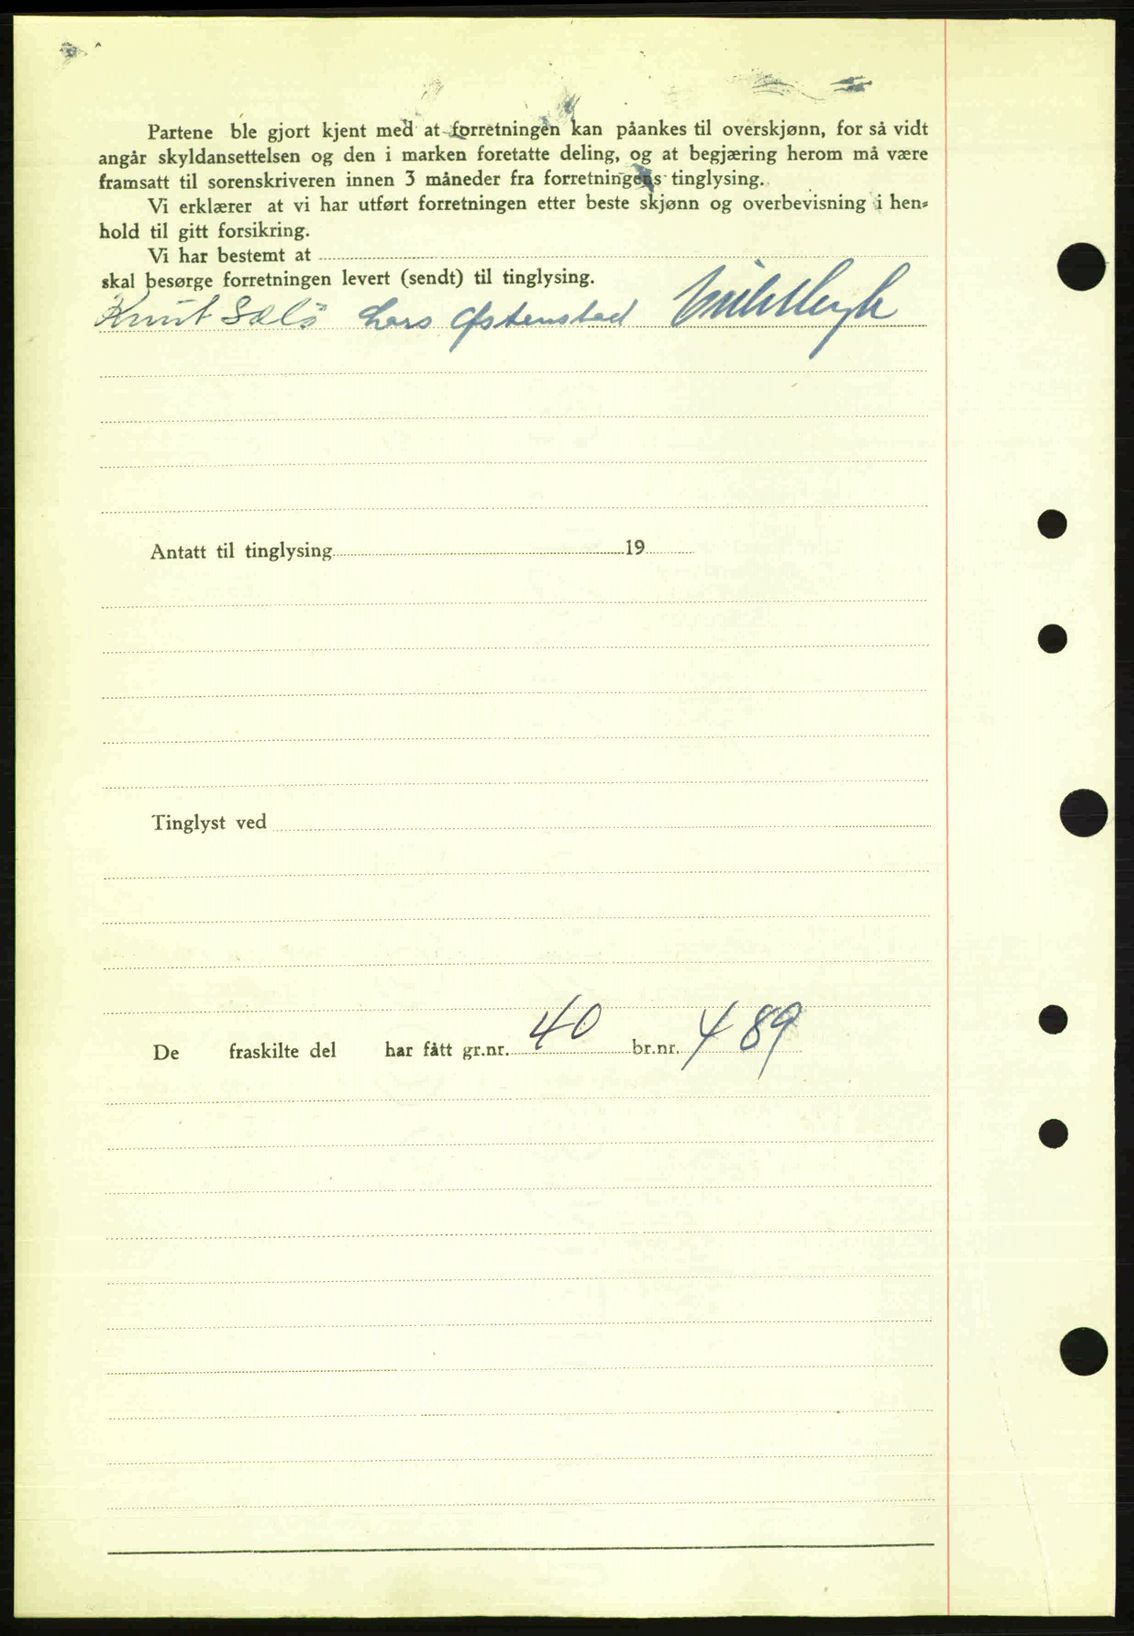 Partene ble gjort kjent med at forretningen kan påankes til overskjønn, for så vidt
angår skyldansettelsen og den i marken foretatte deling, og at begjæring herom må være
framsatt til sorenskriveren innen 3 måneder fra forretningens tinglysing.
Vi erklærer at vi har utført forretningen etter beste skjønn og overbevisning i hen-
hold til gitt forsikring.
Vi har bestemt at
skal besørge forretningen levert (sendt) til tinglysing.
Knut Sælø Lars Østenstad
Antatt til tinglysing 19
Tinglyst ved
De fraskilte del har fått gr.nr. 40 br.nr. 489